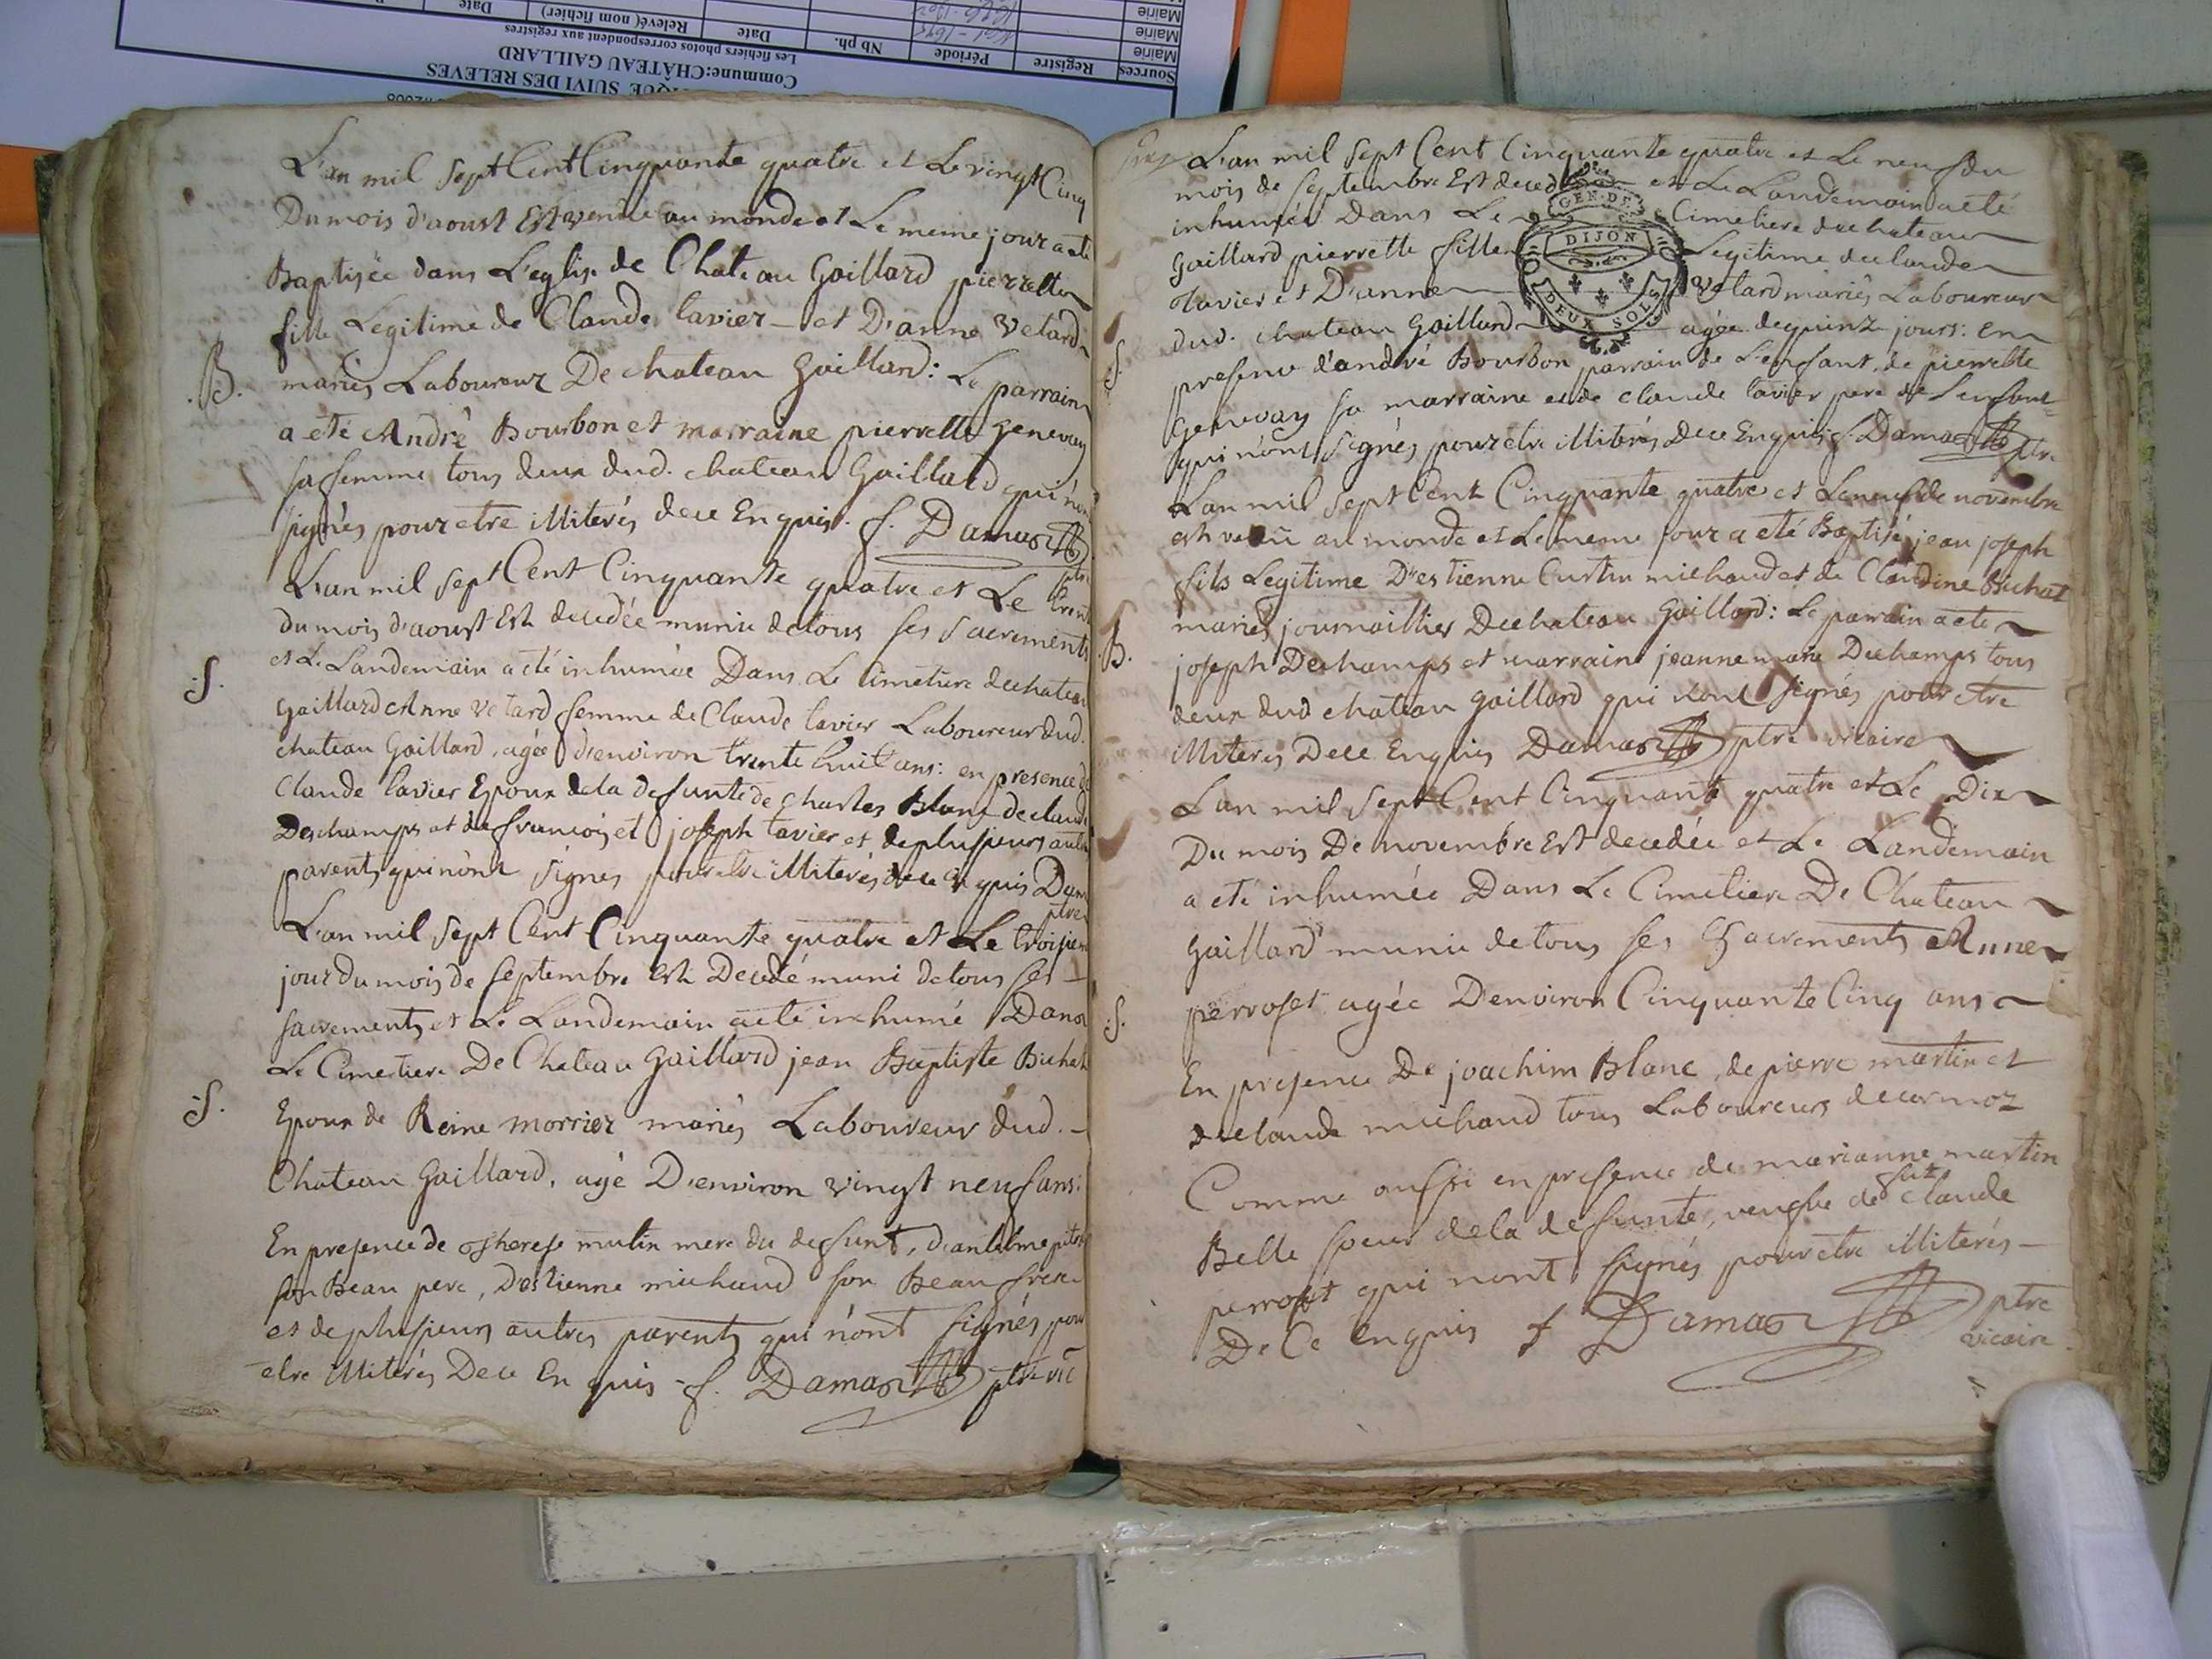 QUE SUIVI DES RELEVES
Commune:CHÂTEAU GAILLARD
Les fichiers photos correspondent aux registres
Sources Registre Période Nb ph. Date Relevé( nom fichier) Date
Mairie
Mairie
Mairie
L'an mil Sept Cent Cinquante quatre et Le vingt Cinq
Du mois d'aoust Est venue au monde et Le meme jour a eté
Baptisée dans L'eglise de Chateau Gaillard pierrette
fille Legitime de Claude tavier et D'anne Vetard
.B. mariés Laboureur De chateau Gaillard: Le parrain
a eté André Bourbon et marraine pierrette genevay
sa femme tous deux dud. chateau Gaillard qui n'ont
signés pour etre illiterés de ce Enquis. f. Damas
ptre
L'an mil Sept Cent Cinquante quatre et Le trente
du mois d'aoust Est decedée munie de tous ses sacrements
et Le Landemain a été inhumée Dans Le Cimetiere de chateau
.S. Gaillard Anne Vetard femme de Claude tavier Laboureur dud.
chateau Gaillard, agée d'environ trente huit ans: en presence de
Claude tavier Epoux de la defunte de Charles Blanc de claude
Deschamps et de francois et joseph tavier et de plusieurs autres
parents qui n'ont signés pour etre illiterés de ce Enquis Dam
ptre
L'an mil Sept Cent Cinquante quatre et Le troisieme
jour du mois de Septembre Est Decedé muni de tous ses
sacrements et Le Landemain a eté inhumé Dans
Le Cimetiere De Chateau Gaillard jean Baptiste Bichat
.S. Epoux de Reine morrier mariés Laboureur dud.
Chateau Gaillard, agé D'environ vingt neuf ans:
En presence de therese mutin mere du defunt, d'antelme
son Beau pere, d'estienne michaud son Beau frere
et de plusieurs autres parents qui n'ont signés pour
etre illiterés De ce Enquis f. Damas ptre vic
L'an mil Sept Cent Cinquante quatre et Le neuf du
mois de Septembre Est deced et Le Landemain a eté
inhumée Dans Le Cimetiere de chateau
Gaillard pierrette fille Legitime de claude
tavier et D'anne Vetard mariés Laboureur
dud. chateau Gaillard agée de quinz jours: en
GEN. DE
DIJON
DEUX SOLS
.S. presence d'andré Bourbon parrain de L'enfant, de pierrette
Genevay sa marraine et de claude tavier pere de L'enfant
qui n'ont signés pour etre illiterés De ce Enquis f. Damas ptre
L'an mil Sept Cent Cinquante quatre et Le neuf de novembre
est venu au monde et Le meme jour a eté Baptisé jean joseph
fils Legitime D'estienne Curtin michaud et de Claudine Bichat
mariés journaillier De chateau Gaillard: Le parrain a eté
.B. joseph Deschamps et marraine jeanne marie Dechamps tous
deux dud chateau gaillard qui n'ont signés pour etre
illiterés De ce Enquis Damas ptre vicaire
L'an mil Sept Cent Cinquante quatre et Le Dix
Du mois De novembre Est decedée et Le Landemain
a eté inhumée Dans Le Cimetiere De Chateau
Gaillard munie de tous ses Sacrements Anne
.S. perroset agée D'environ Cinquante Cinq ans
En presence De joachim Blanc, de pierre martin et
de claude michaud tous Laboureurs de cormoz
Comme aussi en presence de marianne martin
Belle soeur de la defunte, veufve de fut claude
perroset qui n'ont signés pour etre illiterés
De Ce enquis f Damas ptre
vicaire